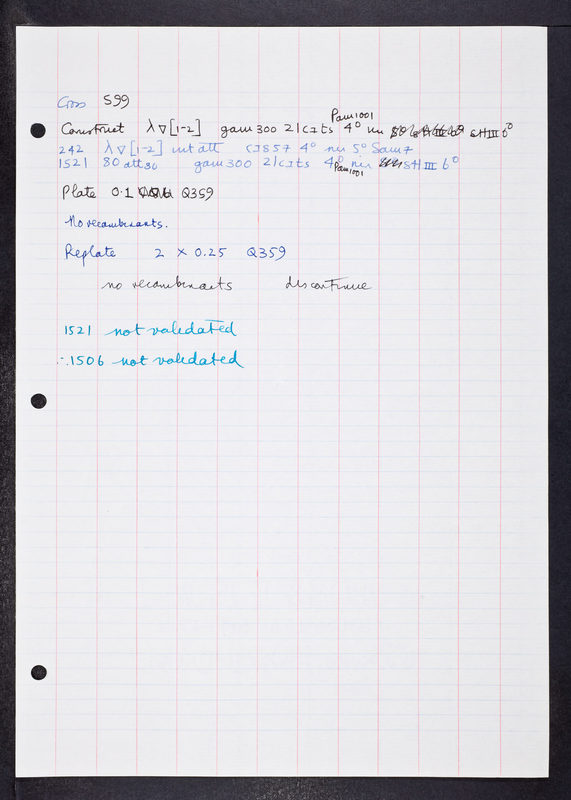 Cross 599
Pam1001
Construct λ∇[1-2] gam300 21cIts 4° nin SHIII 6°
242 λ∇[1-2] int att cI857 4° nin 5° Sam7
1521 80 att80 gam300 21cIts 4° nin SHIII 6°
Pam1001
Plate 0.1 Q359
No recombinants.
Replate 2 × 0.25 Q359
no recombinants discontinue
1521 not validated
∴1506 not validated